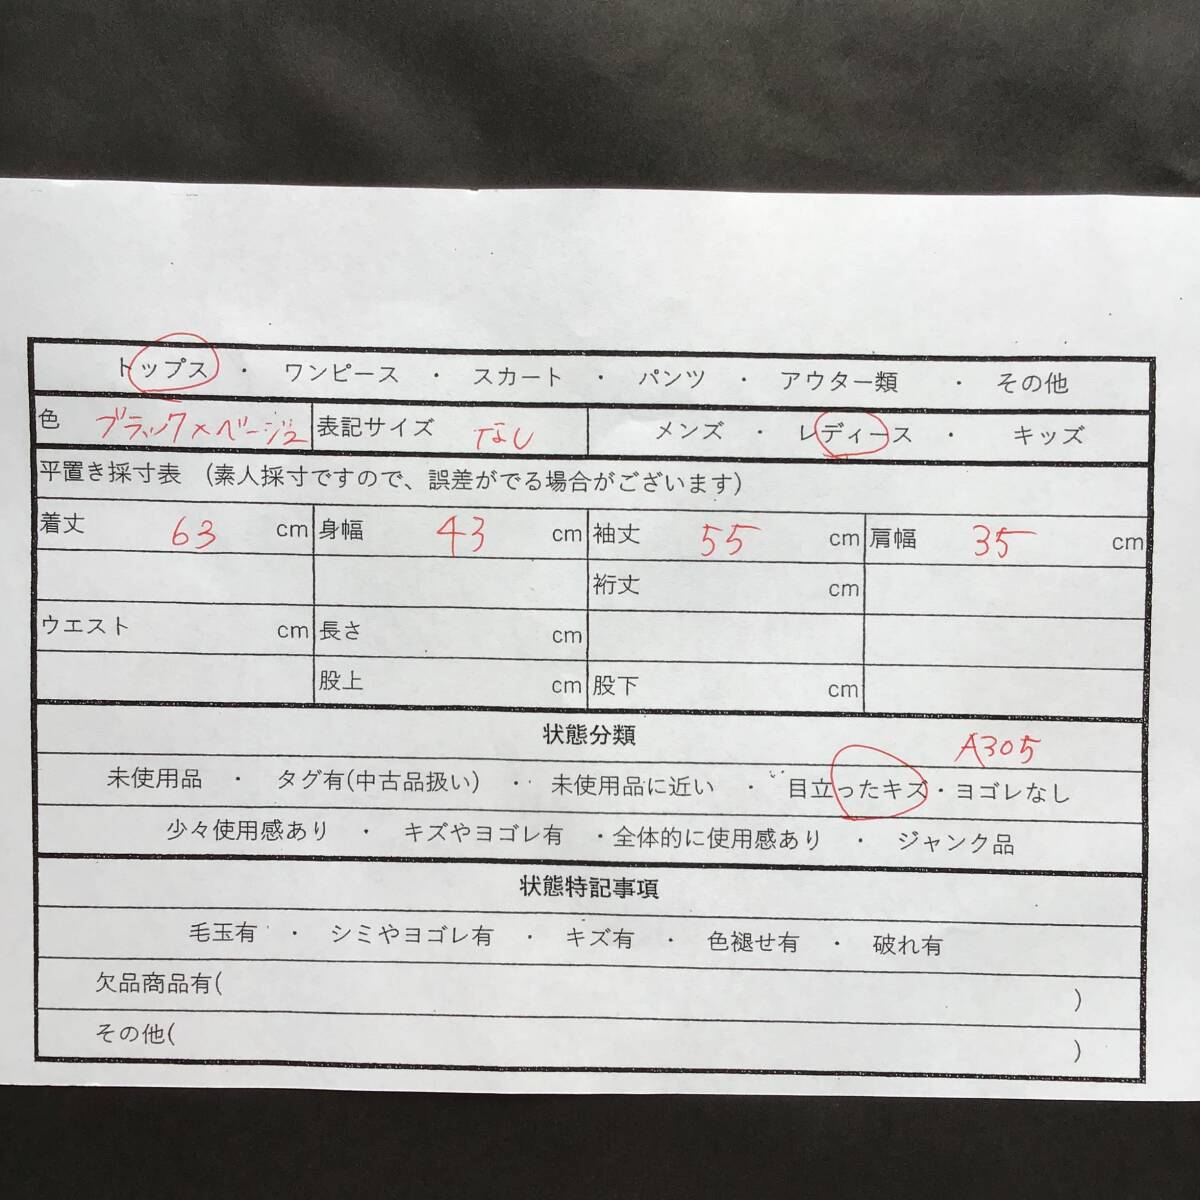 トップス ・ ワンピース ・ スカート ・ パンツ ・ アウター類 ・ その他
色 ブラック×ベージュ 表記サイズ なし メンズ ・ レディース ・ キッズ
平置き採寸表 (素人採寸ですので、誤差がでる場合がございます)
着丈 63 cm 身幅 43 cm 袖丈 55 cm 肩幅 35 cm
裄丈 cm
ウエスト cm 長さ cm
股上 cm 股下 cm
状態分類 A305
未使用品 ・ タグ有(中古品扱い) ・ 未使用品に近い ・ 目立ったキズ・ヨゴレなし
少々使用感あり ・ キズやヨゴレ有 ・全体的に使用感あり ・ ジャンク品
状態特記事項
毛玉有 ・ シミやヨゴレ有 ・ キズ有 ・ 色褪せ有 ・ 破れ有
欠品商品有( )
その他( )